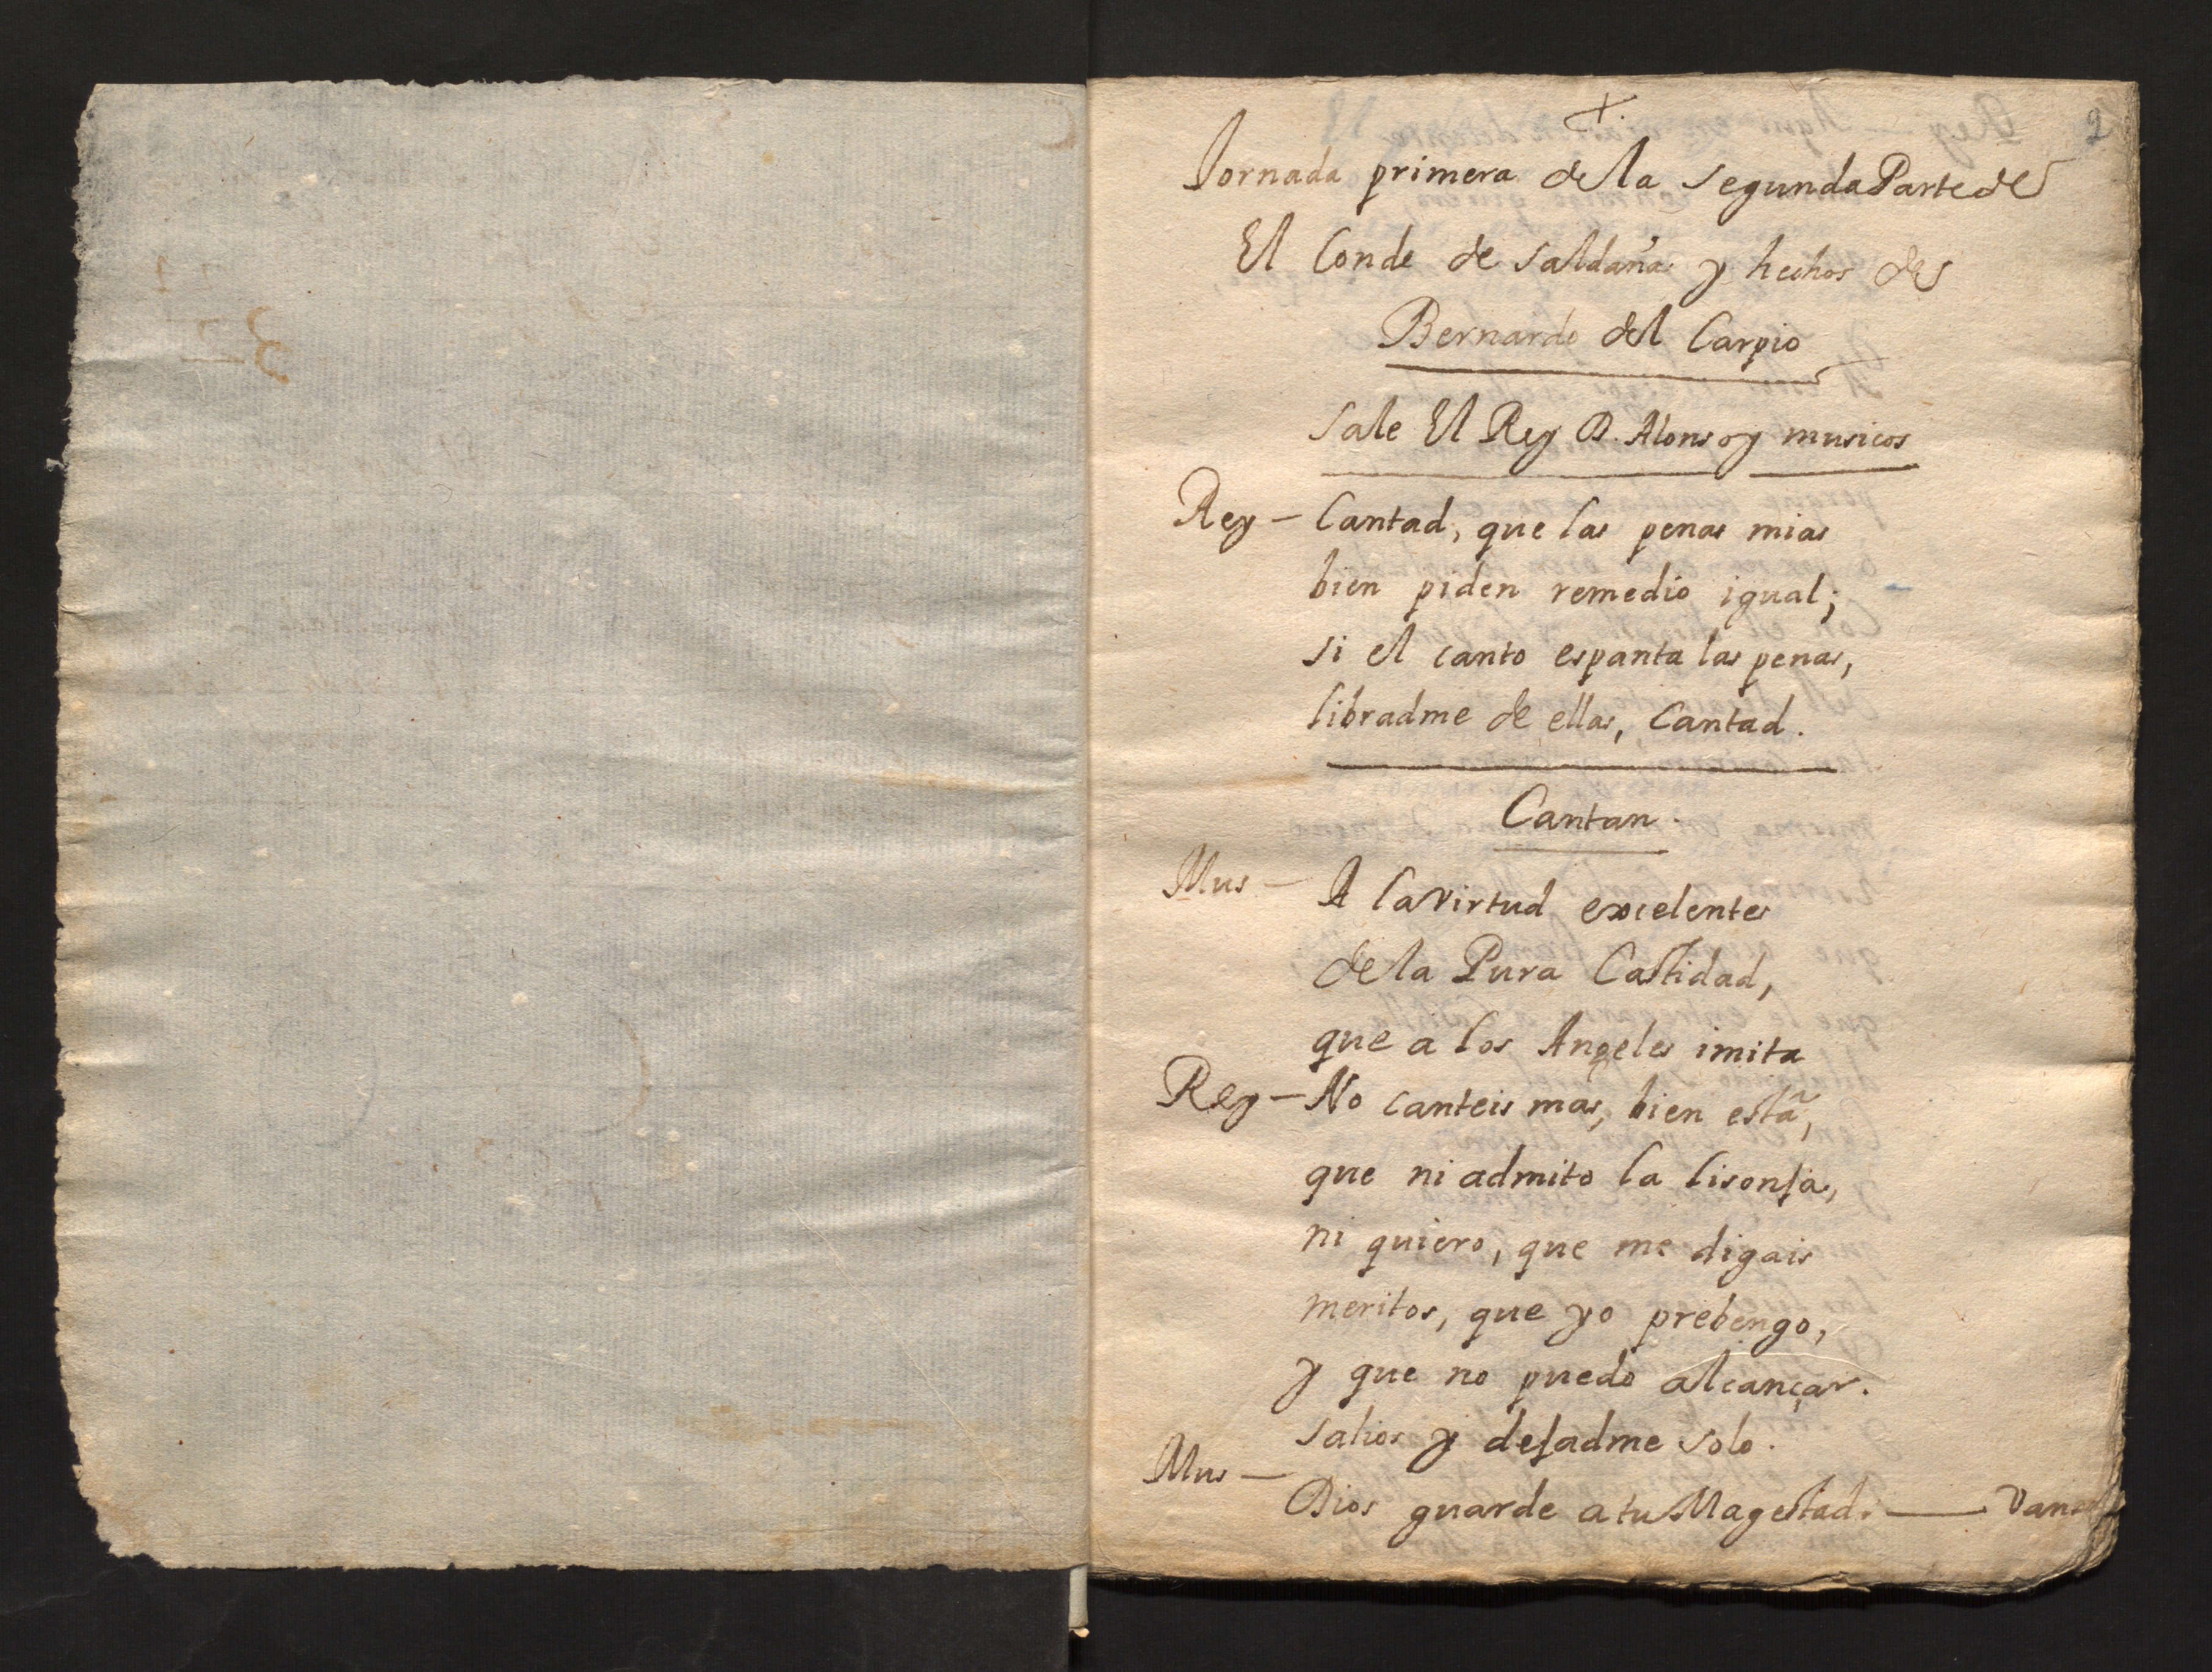 2
Jornada primera de la segunda Parte de
El Conde de Saldaña y hechos de
Bernardo del Carpio
Sale El Rey D. Alonso y musicos
Rey - Cantad, que las penas mias
bien piden remedio igual;
si el canto espanta las penas,
libradme de ellas, Cantad.
Cantan.
Mus - A la virtud excelente
de la Pura Castidad,
que a los Angeles imita
Rey - No canteis mas, bien està,
que ni admito la lisonja,
ni quiero, que me digais
meritos, que yo prebengo,
y que no puedo alcançar.
salios y dejadme solo.
Mus - Dios guarde a tu Magestad. — Vanse